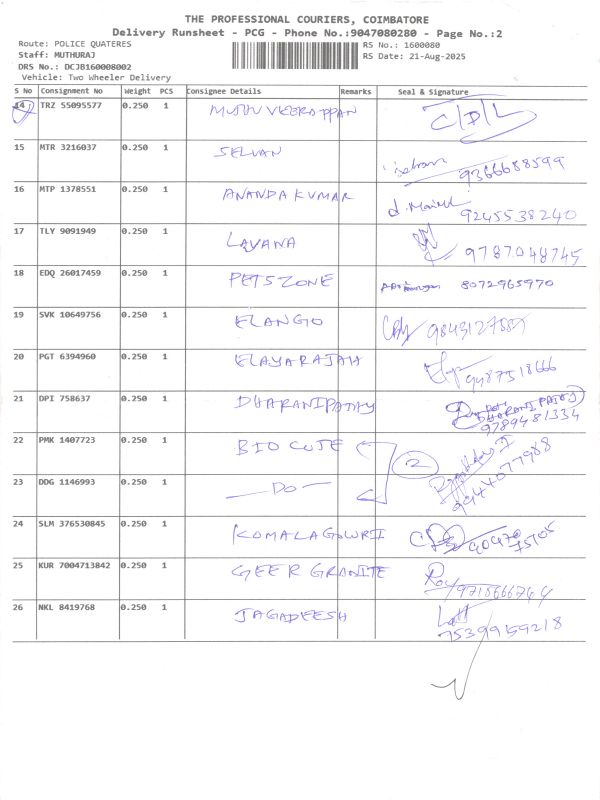 THE PROFESSIONAL COURIERS, COIMBATORE
Delivery Runsheet - PCG - Phone No.:9047080280 - Page No.:2
Route: POLICE QUATERES RS No.: 1600080
Staff: MUTHURAJ RS Date: 21-Aug-2025
DRS No.: DCJB160008002
Vehicle: Two Wheeler Delivery
S No Consignment No Weight PCS Consignee Details Remarks Seal & Signature
14 TRZ 55095577 0.250 1 MUTHU VEERAPPAN C/D/L
15 MTR 3216037 0.250 1 SELVAN 9366688599
16 MTP 1378551 0.250 1 ANANDA KUMAR 9245538240
17 TLY 9091949 0.250 1 LAVANA 9787048745
18 EDQ 26017459 0.250 1 PETSZONE 8072965970
19 SVK 10649756 0.250 1 ELANGO
20 PGT 6394960 0.250 1 ELAYARAJAH 9487518666
21 DPI 758637 0.250 1 DHARANIPATHY
9789481334
22 PMK 1407723 0.250 1 BIO CUTE 2
9944077988
23 DDG 1146993 0.250 1 — DO —
24 SLM 376530845 0.250 1 KOMALAGOWRI
25 KUR 7004713842 0.250 1 GEER GRANITE
26 NKL 8419768 0.250 1 JAGADEESH
7539959218